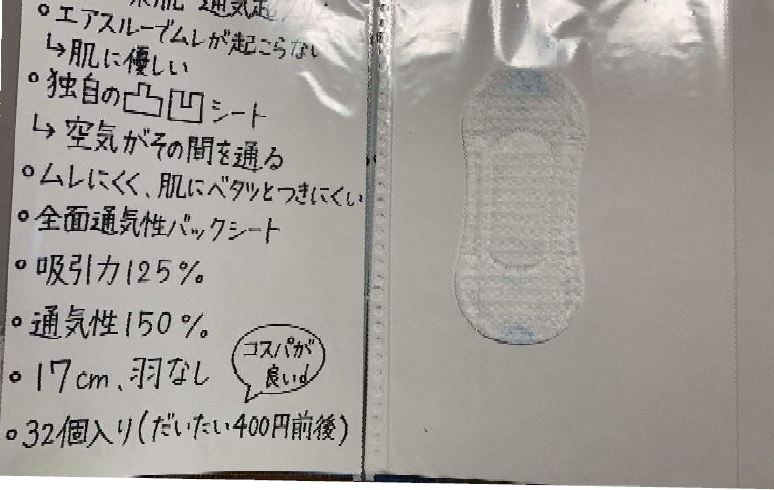 通気
○エアスルーでムレが起こらない
↳肌に優しい
○独自の凸凹シート
↳空気がその間を通る
○ムレにくく、肌にベタッとつきにくい
○全面通気性バックシート
○吸引力125%
○通気性150%
○17cm、羽なし
コスパが
良い♩
○32個入り(だいたい400円前後)